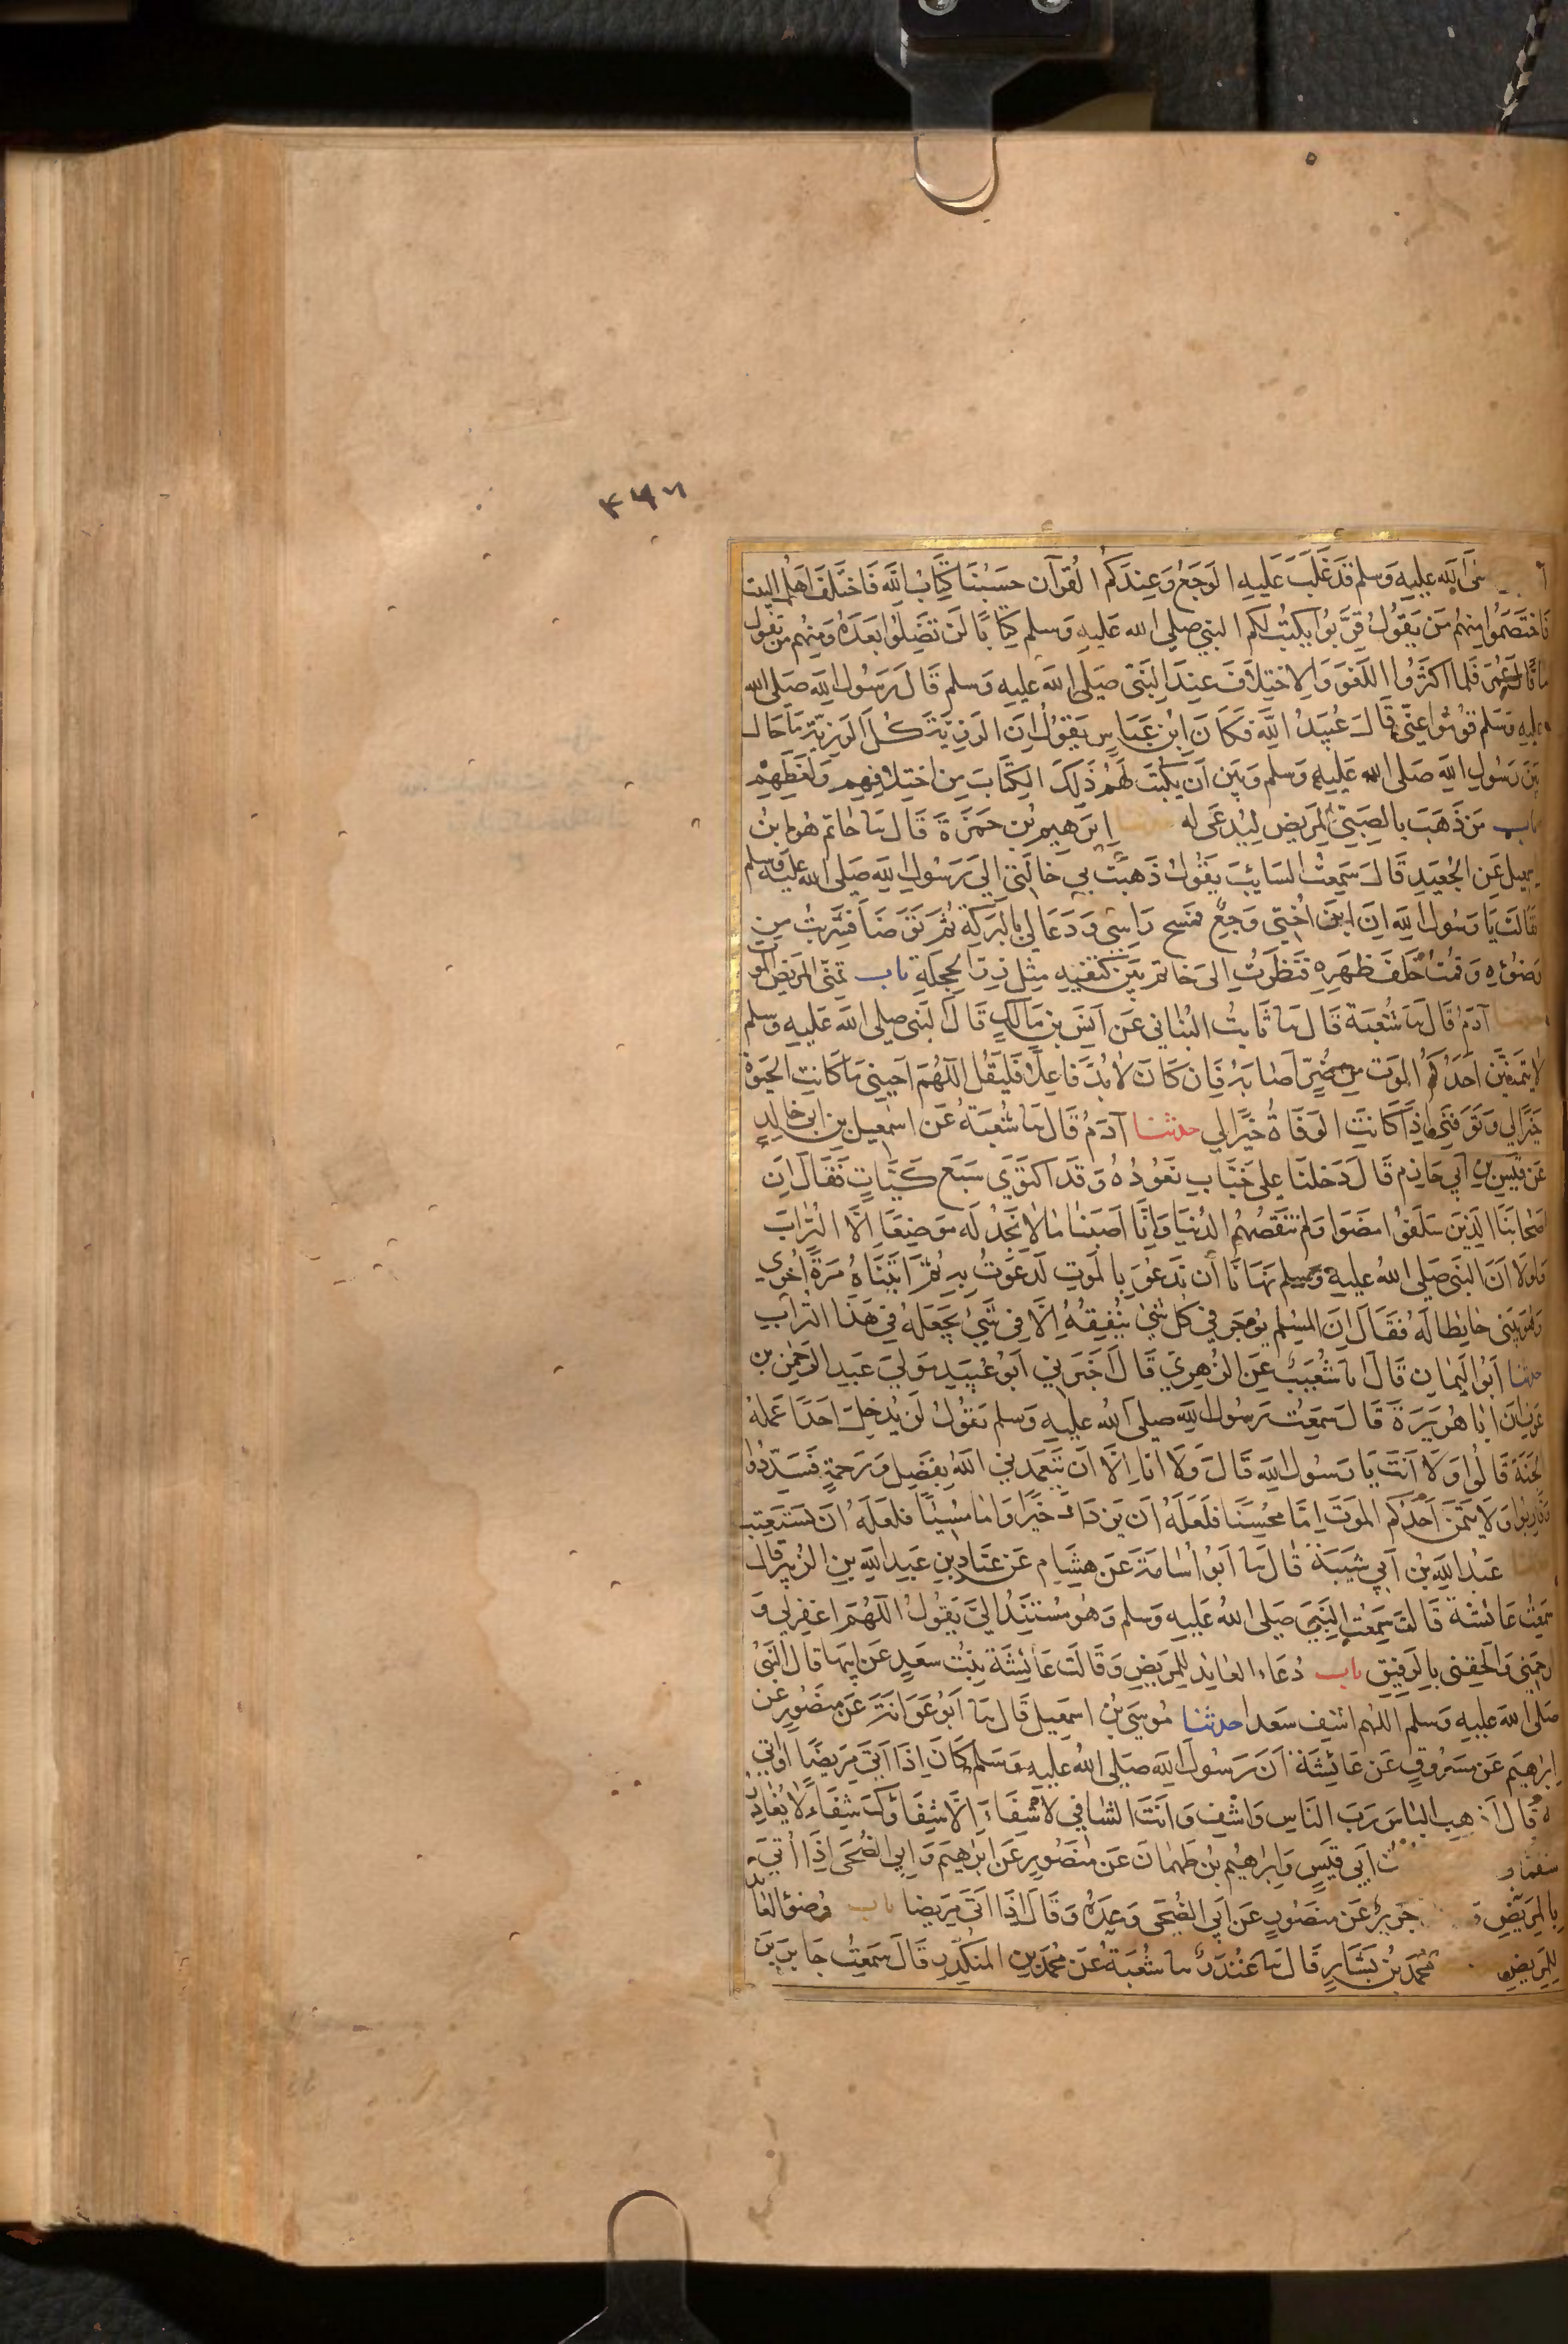 ٣٩٨
صلى الله عليه وسلم قد غلب عليه الوجع وعندكم القرآن حسبنا كتاب الله فاختلف اهل البيت
فاختصموا منهم من يقول قربوا يكتب لكم النبي صلى الله عليه وسلم كتابا لن تضلوا بعده ومنهم من يقول
ما قال عمر فلما اكثروا اللغو والاختلاف عند النبي صلى الله عليه وسلم قال رسول الله صلى الله
عليه وسلم قوموا عني قال عبيد الله فكان ابن عباس يقول ان الرزية كل الرزية ما حال
بين رسول الله صلى الله عليه وسلم وبين ان يكتب لهم ذلك الكتاب من اختلافهم ولغطهم
باب من ذهب بالصبي المريض ليدعى له حدثنا ابرهيم بن حمزة قال نا حاتم هو ابن
اسمعيل عن الجعيد قال سمعت السائب يقول ذهبت بي خالتي الى رسول الله صلى الله عليه وسلم
فقالت يا رسول الله ان ابن اختي وجع فمسح راسي ودعا لي بالبركة ثم توضا فشربت من
وضوئه وقمت خلف ظهره فنظرت الى خاتم بين كتفيه مثل زر الحجلة باب تمنى المريض الموت
حدثنا آدم قال نا شعبة قال نا ثابت البناني عن انس بن مالك قال النبي صلى الله عليه وسلم
لا يتمنين احدكم الموت من ضر اصابه فان كان لا بد فاعلا فليقل اللهم احيني ما كانت الحيوة
خيرا لي وتوفني اذا كانت الوفاة خيرا لي حدثنا آدم قال نا شعبة عن اسمعيل بن ابي خالد
عن قيس بن ابي حازم قال دخلنا على خباب نعوده وقد اكتوى سبع كيات فقال ان
اصحابنا الذين سلفوا مضوا ولم تنقصهم الدنيا وانا اصبنا ما لا نجد له موضعا الا التراب
ولولا ان النبي صلى الله عليه وسلم نهانا ان ندعو بالموت لدعوت به ثم اتيناه مرة اخرى
وهو يبنى حايطا له فقال ان المسلم يوجر في كل شئ ينفقه الا في شئ يجعله في هذا التراب
حدثنا ابو اليمان قال نا شعيب عن الزهري قال اخبرني ابو عبيد مولى عبد الرحمن بن
عوف ان ابا هريرة قال سمعت رسول الله صلى الله عليه وسلم يقول لن يدخل احدا عمله
الجنة قالوا ولا انت يا رسول الله قال ولا انا الا ان يتغمدني الله بفضل ورحمة فسددوا
وقاربوا ولا يتمن احدكم الموت اما محسنا فلعله ان يزداد خيرا واما مسيئا فلعله ان يستعتب
حدثنا عبد الله بن ابي شيبة قال نا ابو اسامة عن هشام عن عباد بن عبد الله بن الزبير قال
سمعت عائشة قالت سمعت النبي صلى الله عليه وسلم وهو مستند الي يقول اللهم اغفر لي و
ارحمني والحقني بالرفيق باب دعاء العايد للمريض وقالت عائشة بنت سعد عن ابيها قال النبي
صلى الله عليه وسلم اللهم اشف سعدا حدثنا موسى بن اسمعيل قال نا ابو عوانة عن منصور عن
ابراهيم عن مسروق عن عائشة ان رسول الله صلى الله عليه وسلم كان اذا اتى مريضا او اتي
به قال اذهب الباس رب الناس واشف وانت الشافي لا شفاء الا شفاؤك شفاء لا يغادر
سقما و ابي قيس وابراهيم بن طهمان عن منصور عن ابراهيم وابي الضحى اذا اتي
بالمريض و جرير عن منصور عن ابي الضحى وحده وقال اذا اتى مريضا باب وضوء العائد
للمريض محمد بن بشار قال نا غندر نا شعبة عن محمد بن المنكدر قال سمعت جابر بن